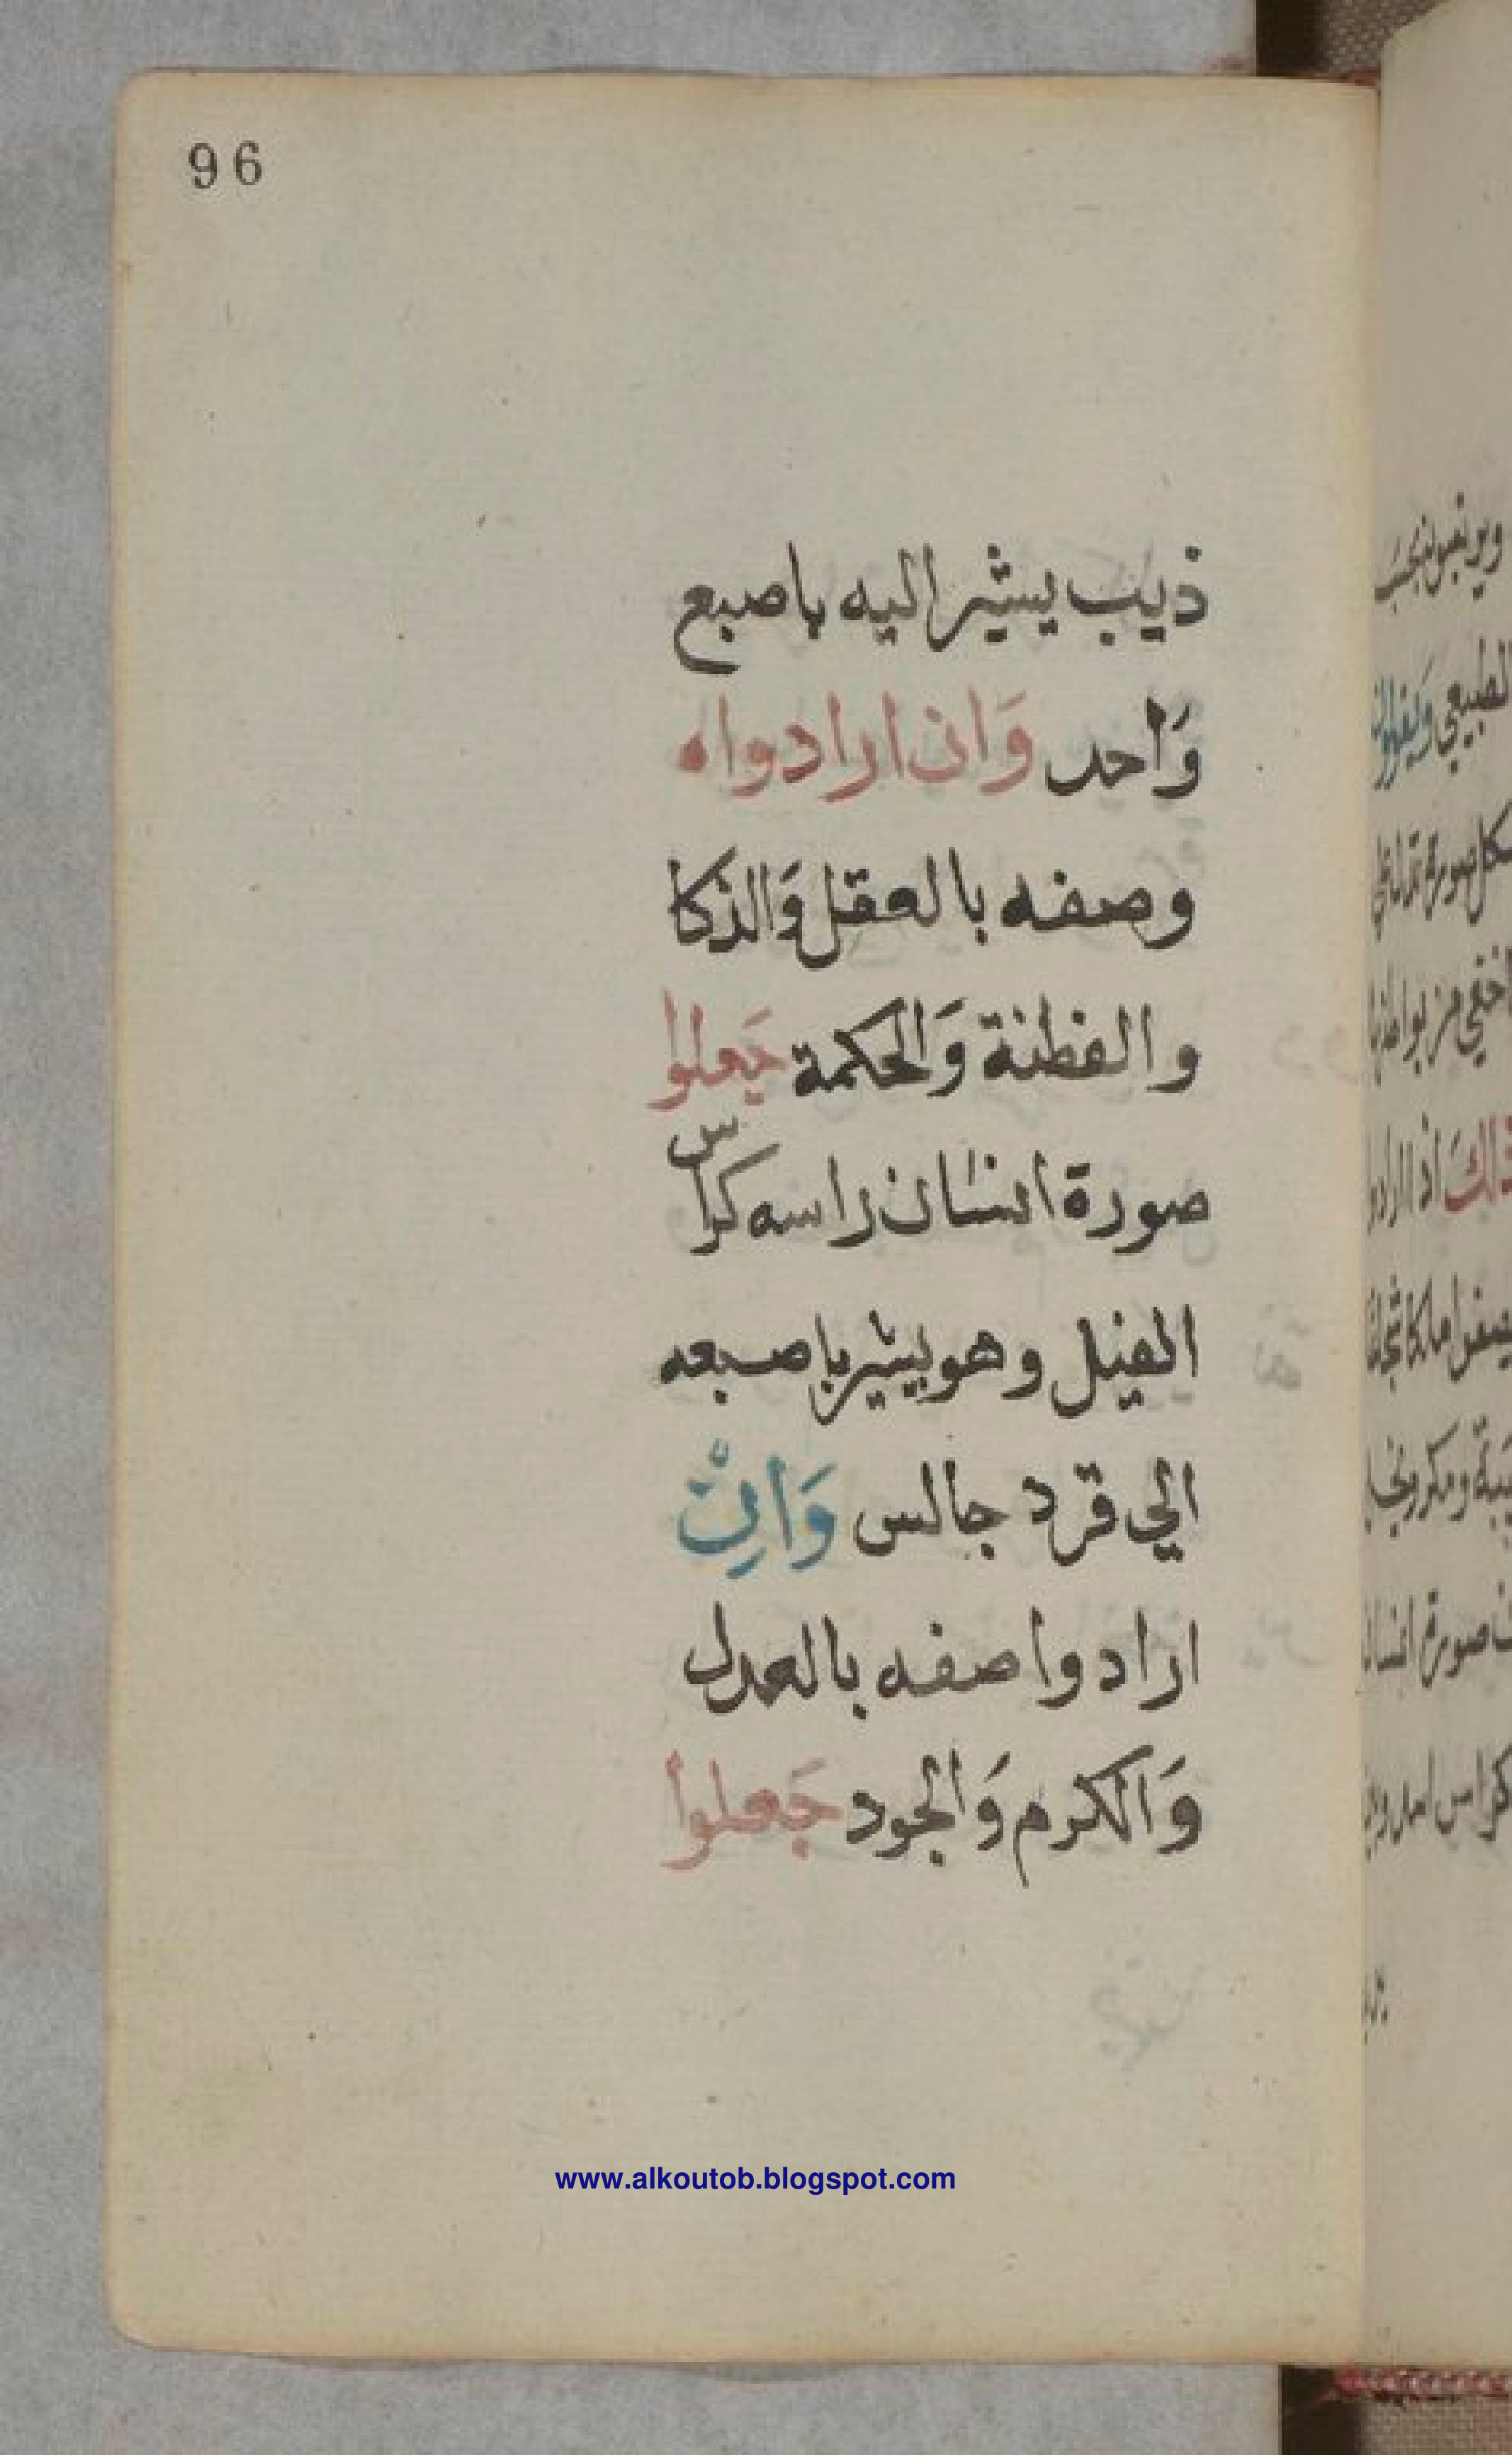 96
ذيب يشير اليه باصبع
وَاحد وَان ارادوا ه
وصفه بالعقل وَالذكا
والفطنة وَالحكمة جَعلوا
صورة انسان راسه كراس
الفيل وهو يشير باصبعه
الي قرد جالس وَانْ
ارادوا صفه بالعدل
وَالكرم وَالجود جَعلوا
www.alkoutob.blogspot.com